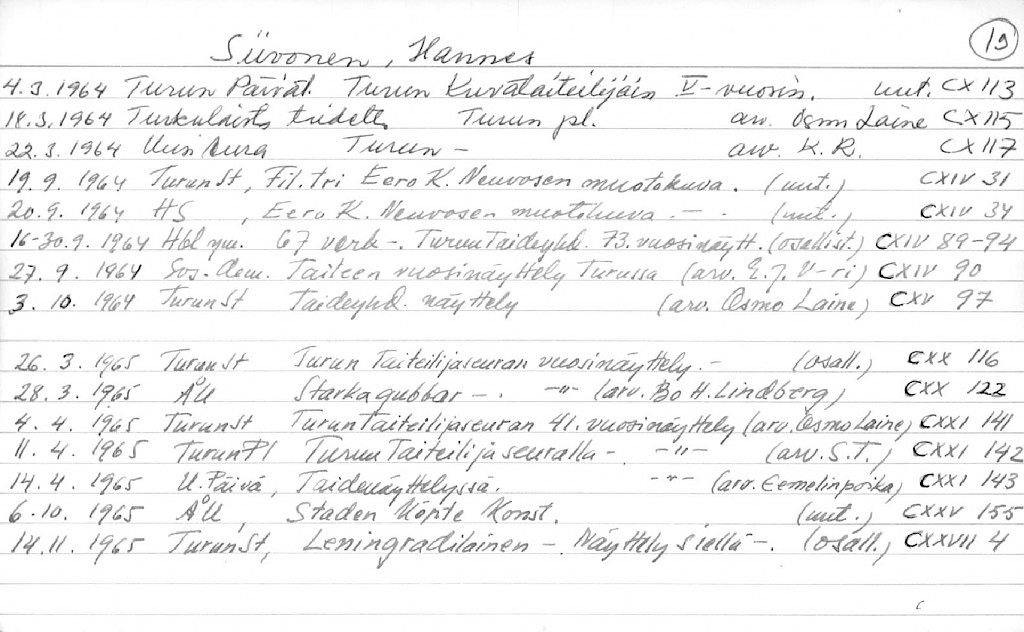 19
Siivonen, Hannes
4.3.1964 Turun Päiväl. Turun Kuvataiteilijain V-vuosin. uut. CX 113
18.3.1964 Turkulaista taidetta Turun pl. arv. Osmo Laine CX 115
22.3.1964 Uusi Aura Turun - arv. K.R. CX 117
19.9. 1964 TurunSt, Fil.tri Eero K. Neuvosen muotokuva. (uut.) CXIV 31
20.9. 1964 HS , Eero K. Neuvosen muotokuva. - . (uut.) CXIV 34
16-30.9. 1964 Hbl ym. 67 verk -. Turun Taideyhd. 73. vuosinäytt. (osallist.) CXIV 89-94
27. 9. 1964 Sos-dem. Taiteen vuosinäyttely Turussa (arv. E.J. V-ri) CXIV 90
3. 10. 1964 TurunSt Taideyhd. näyttely (arv. Osmo Laine) CXV 97
26. 3. 1965 TurunSt Turun Taiteilijaseuran vuosinäyttely. - (osall.) CXX 116
28. 3. 1965 ÅU Starka gubbar - . -"- (arv. Bo H. Lindberg) CXX 122
4. 4. 1965 TurunSt Turun Taiteilijaseuran 41. vuosinäyttely (arv. Osmo Laine) CXXI 141
11. 4. 1965 TurunPl Turun Taiteilijaseuralla - . -"- (arv. S.T.) CXXI 142
14. 4. 1965 U. Päivä, Taidenäyttelyssä. -"- (arv. Eemelinpoika) CXXI 143
6. 10. 1965 ÅU, Staden köpte konst. (uut.) CXXV 155
14.11. 1965 TurunSt, Leningradilainen - Näyttely siellä -. (osall.) CXXVII 4